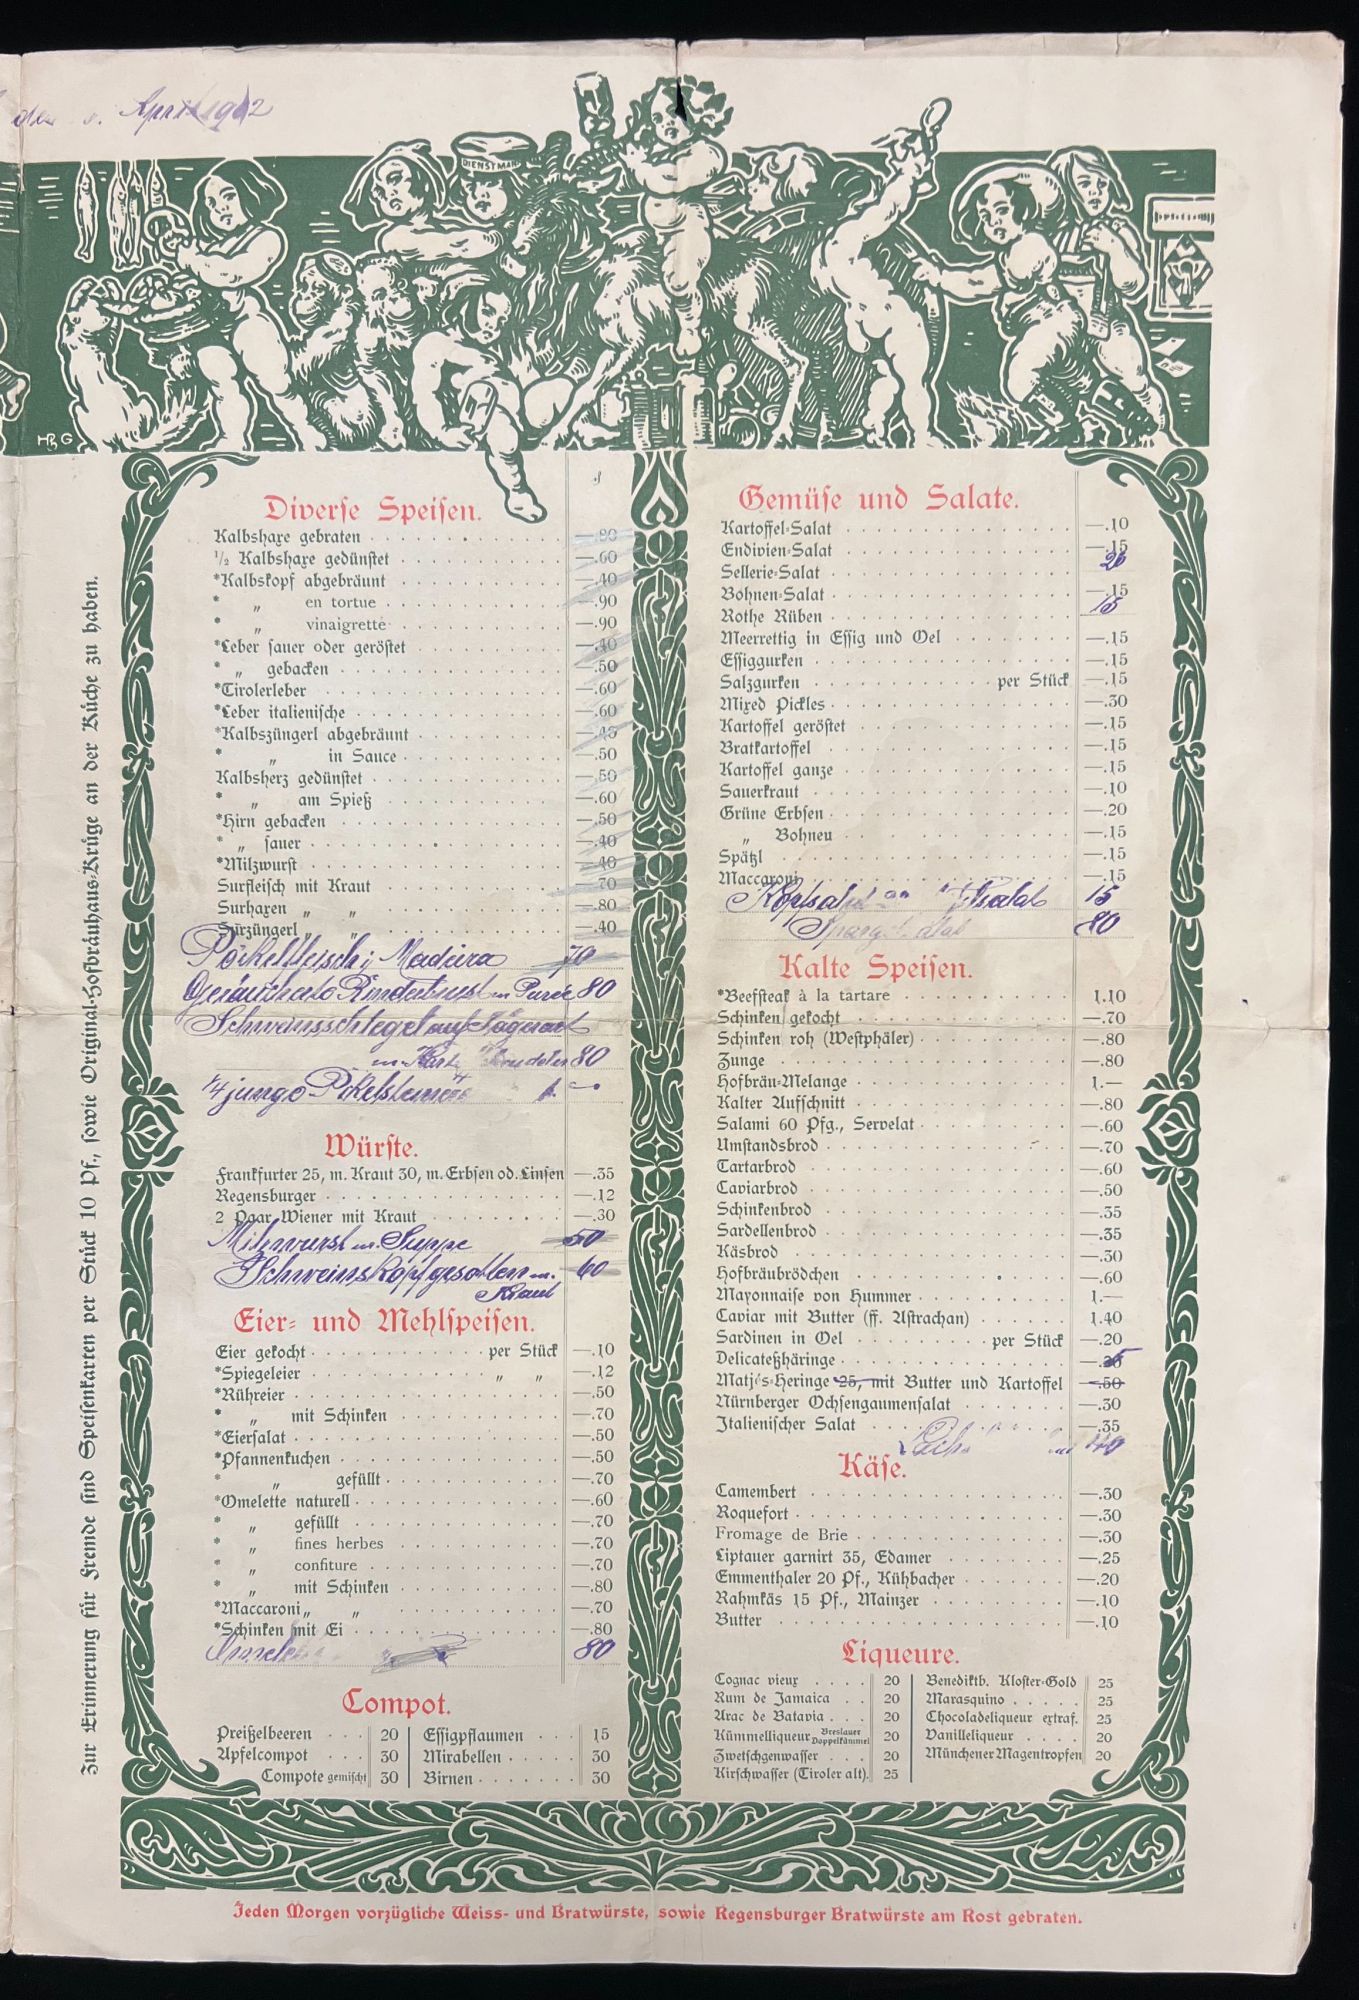 April 1902
DIENSTMAN
HBG
Zur Erinnerung für Fremde sind Speisenkarten per Stück 10 Pf., sowie Original-Hofbräuhaus-Krüge an der Küche zu haben.
Diverse Speisen.
Kalbshaxe gebraten —.80
1/2 Kalbshaxe gedünstet —.60
*Kalbskopf abgebräunt —.40
* „ en tortue —.90
* „ vinaigrette —.90
*Leber sauer oder geröstet —.40
* „ gebacken —.50
*Tirolerleber —.60
*Leber italienische —.60
*Kalbszüngerl abgebräunt —.45
* „ in Sauce —.50
Kalbsherz gedünstet —.50
* „ am Spieß —.60
*Hirn gebacken —.50
* „ sauer —.40
*Milzwurst —.40
Surfleisch mit Kraut —.70
Surhaxen „ „ —.80
Sürzüngerl —.40
Pöckelfleisch i. Madeira 70
Geräucherte Rinderbrust m Purée 80
Schweinsschlegel auf Jägerart
80
1/4 junge
Würste.
Frankfurter 25, m. Kraut 30, m. Erbsen od. Linsen —.35
Regensburger —.12
2 Paar Wiener mit Kraut —.30
Milzwurst m. Suppe 50
Schweinskopf gesotten m. 60
Kraut
Eier- und Mehlspeisen.
Eier gekocht per Stück —.10
*Spiegeleier „ „ —.12
*Rühreier —.50
* „ mit Schinken —.70
*Eiersalat —.50
*Pfannenkuchen —.50
* „ gefüllt —.70
*Omelette naturell —.60
* „ gefüllt —.70
* „ fines herbes —.70
* „ confiture —.70
* „ mit Schinken —.80
*Maccaroni „ „ —.70
*Schinken mit Ei —.80
80
Compot.
Preißelbeeren 20
Apfelcompot 30
Compote gemischt 30
Essigpflaumen 15
Mirabellen 30
Birnen 30
Gemüse und Salate.
Kartoffel-Salat —.10
Endivien-Salat —.15
Sellerie-Salat 20
Bohnen-Salat —.15
Rothe Rüben 15
Meerrettig in Essig und Oel —.15
Essiggurken —.15
Salzgurken per Stück —.15
Mixed Pickles —.30
Kartoffel geröstet —.15
Bratkartoffel —.15
Kartoffel ganze —.15
Sauerkraut —.10
Grüne Erbsen —.20
„ Bohneu —.15
Spätzl —.15
Maccaroni —.15
Kopfsalat 15
80
Kalte Speisen.
*Beefsteak à la tartare 1.10
Schinken gekocht —.70
Schinken roh (Westphäler) —.80
Zunge —.80
Hofbräu-Melange 1.—
Kalter Aufschnitt —.80
Salami 60 Pfg., Servelat —.60
Umstandsbrod —.70
Tartarbrod —.60
Caviarbrod —.50
Schinkenbrod —.35
Sardellenbrod —.35
Käsbrod —.30
Hofbräubrödchen —.60
Mayonnaise von Hummer 1.—
Caviar mit Butter (ff. Astrachan) 1.40
Sardinen in Oel per Stück —.20
Delicateßhäringe
Matjes-Heringe 25, mit Butter und Kartoffel —.50
Nürnberger Ochsengaumensalat —.30
Italienischer Salat —.35
40
Käse.
Camembert —.30
Roquefort —.30
Fromage de Brie —.30
Liptauer garnirt 35, Edamer —.25
Emmenthaler 20 Pf., Kühbacher —.20
Rahmkäs 15 Pf., Mainzer —.10
Butter —.10
Liqueure.
Cognac vieux 20
Rum de Jamaica 20
Arac de Batavia 20
Kümmelliqueur Breslauer Doppelkümmel 20
Zwetschgenwasser 20
Kirschwasser (Tiroler alt) 25
Benediktb. Kloster-Gold 25
Marasquino 25
Chocoladeliqueur extraf. 25
Vanilleliqueur 20
Münchener Magentropfen 20
Jeden Morgen vorzügliche Weiss- und Bratwürste, sowie Regensburger Bratwürste am Rost gebraten.